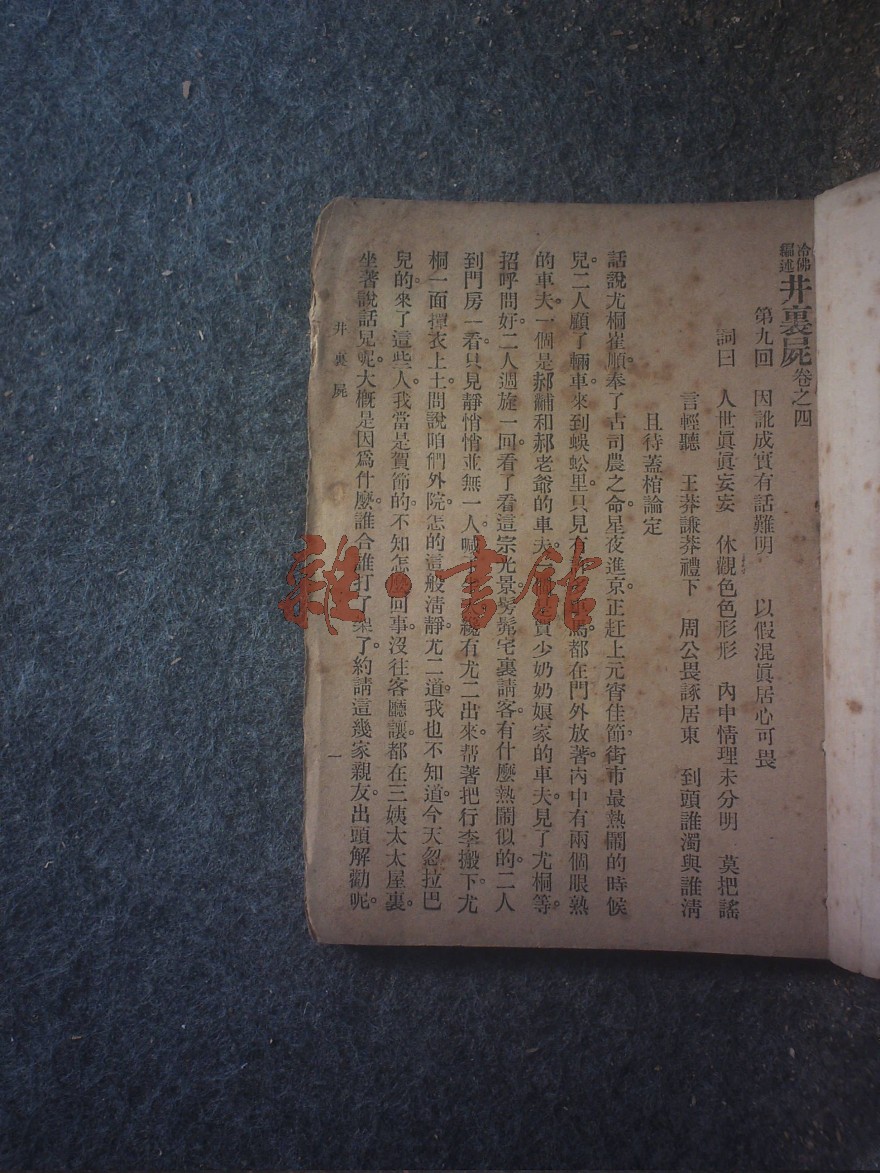 冷佛
編述
井裏屍卷之四
第九回　因訛成實有話難明　以假混眞居心可畏
詞曰　人世眞眞妄妄　休觀色色形形　內中情理未分明　莫把謠
言輕聽　王莽謙恭禮下　周公畏諑居東　到頭誰濁與誰淸
且待蓋棺論定
話說尤桐崔順。奉了古司農之命。星夜進京。正赶上元宵佳節。街市最熱鬧的時候
兒。二人顧了輛車。來到蜈蚣里。只見有馬。都在門外放著。內中有兩個眼熟
的車夫。一個是郝黼和郝老爺的車夫。賈少奶奶娘家的車夫。見了尤桐等。
招呼問好。二人週旋一回。看了看這宗光景。髣髴宅裏請客。有什麼熱鬧似的。二人
到門房一看。只見靜悄悄並無一人。喊纔有尤二出來。帮著把行李搬下。尤
桐一面撣衣上土。問說咱們外院。怎的這般淸靜。尤二道。我也不知道。今天忽拉巴
兒的。來了這些人。我當是賀節的。不知怎麼回事。沒往客廳讓。都在三姨太太屋裏。
坐著說話兒呢。大概是因爲什麼。誰合誰打了架了。約請這幾家親友出頭解勸呢。
井裏屍
一
雜·書館